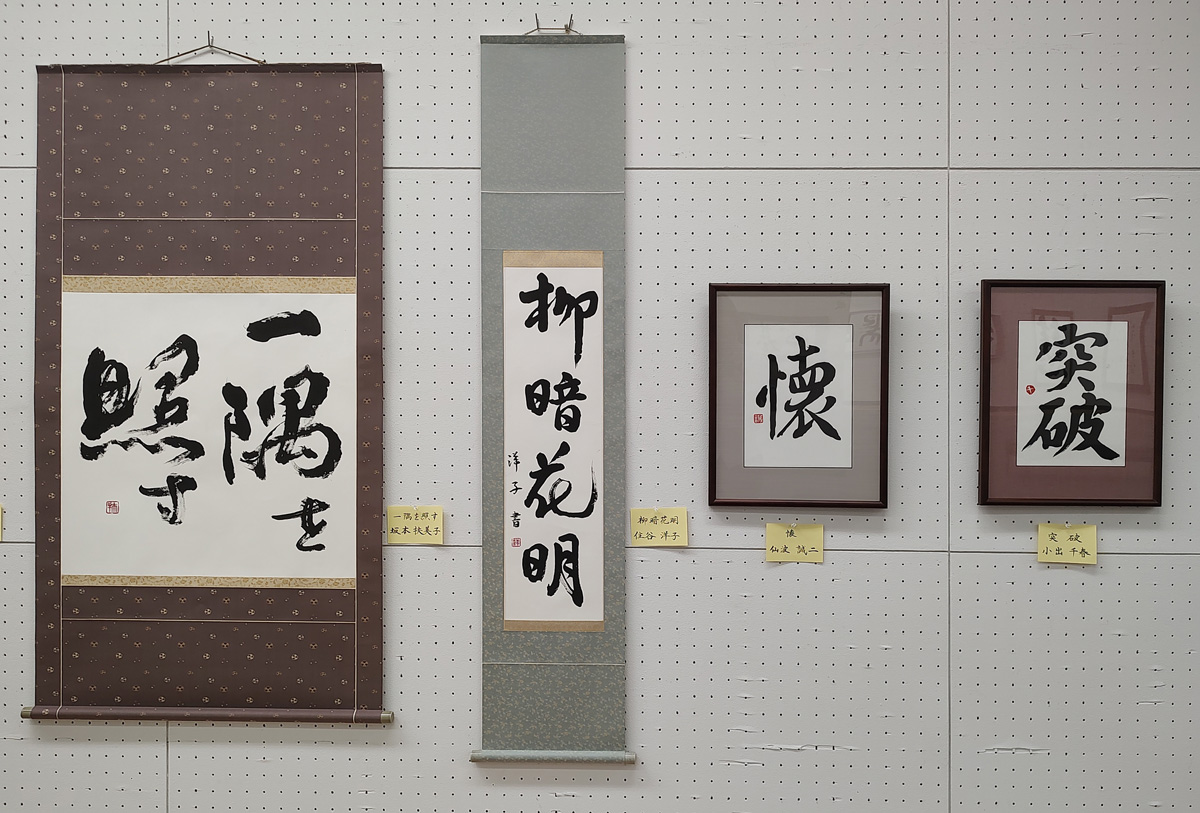 一隅を
照す
一隅を照す
坂本 枝美子
柳暗花明
洋子書
柳暗花明
住谷 洋子
懐
懐
仙波 誠二
突破
突 破
小出 千春